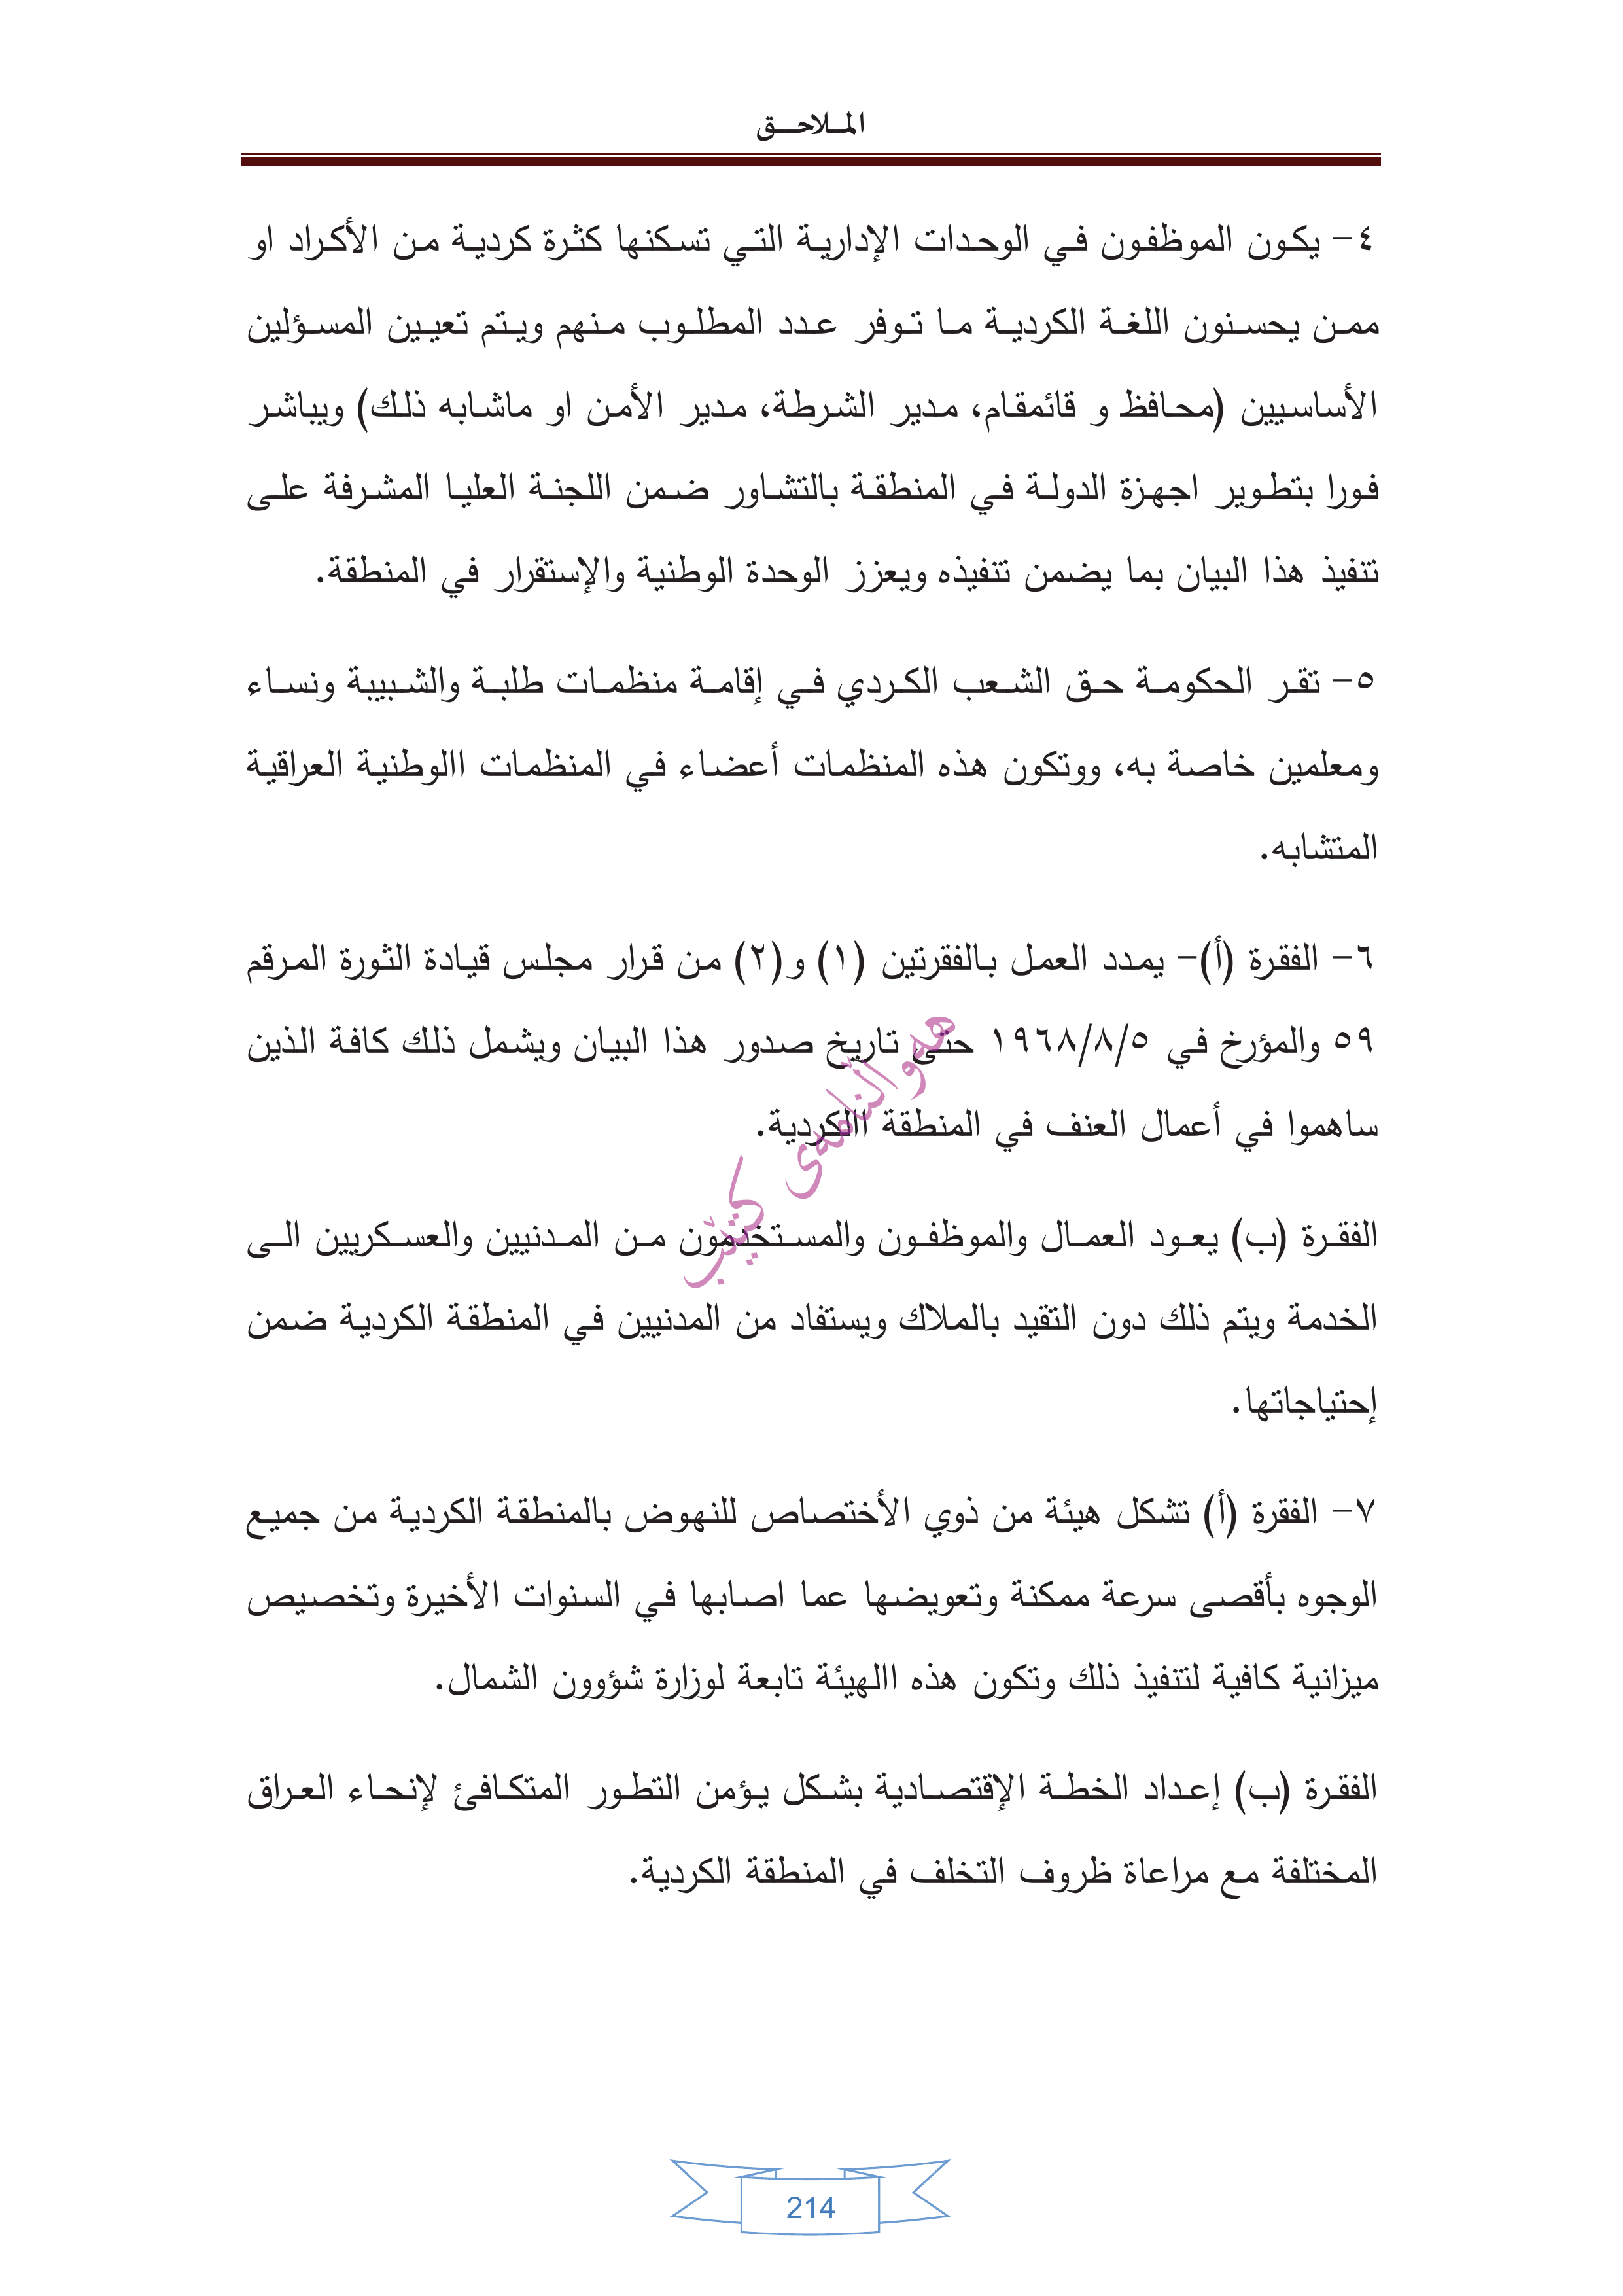 الملاحق
٤- يكون الموظفون في الوحدات الإدارية التي تسكنها كثرة كردية من الأكراد او
ممن يحسنون اللغة الكردية ما توفر عدد المطلوب منهم ويتم تعيين المسؤلين
الأساسيين (محافظ و قائمقام، مدير الشرطة، مدير الأمن او ماشابه ذلك) ويباشر
فورا بتطوير اجهزة الدولة في المنطقة بالتشاور ضمن اللجنة العليا المشرفة على
تنفيذ هذا البيان بما يضمن تنفيذه ويعزز الوحدة الوطنية والإستقرار في المنطقة.
٥- تقر الحكومة حق الشعب الكردي في إقامة منظمات طلبة والشبيبة ونساء
ومعلمين خاصة به، ووتكون هذه المنظمات أعضاء في المنظمات االوطنية العراقية
المتشابه.
٦- الفقرة (أ)- يمدد العمل بالفقرتين (١) و(٢) من قرار مجلس قيادة الثورة المرقم
٥٩ والمؤرخ في ١٩٦٨/٨/٥ حتى تاريخ صدور هذا البيان ويشمل ذلك كافة الذين
ساهموا في أعمال العنف في المنطقة االكردية.
الفقرة (ب) يعود العمال والموظفون والمستخدمون من المدنيين والعسكريين الى
الخدمة ويتم ذلك دون التقيد بالملاك ويستفاد من المدنيين في المنطقة الكردية ضمن
إحتياجاتها.
٧- الفقرة (أ) تشكل هيئة من ذوي الأختصاص للنهوض بالمنطقة الكردية من جميع
الوجوه بأقصى سرعة ممكنة وتعويضها عما اصابها في السنوات الأخيرة وتخصيص
ميزانية كافية لتنفيذ ذلك وتكون هذه االهيئة تابعة لوزارة شؤوون الشمال.
الفقرة (ب) إعداد الخطة الإقتصادية بشكل يؤمن التطور المتكافئ لإنحاء العراق
المختلفة مع مراعاة ظروف التخلف في المنطقة الكردية.
هەواڵنامەی کتێب
214